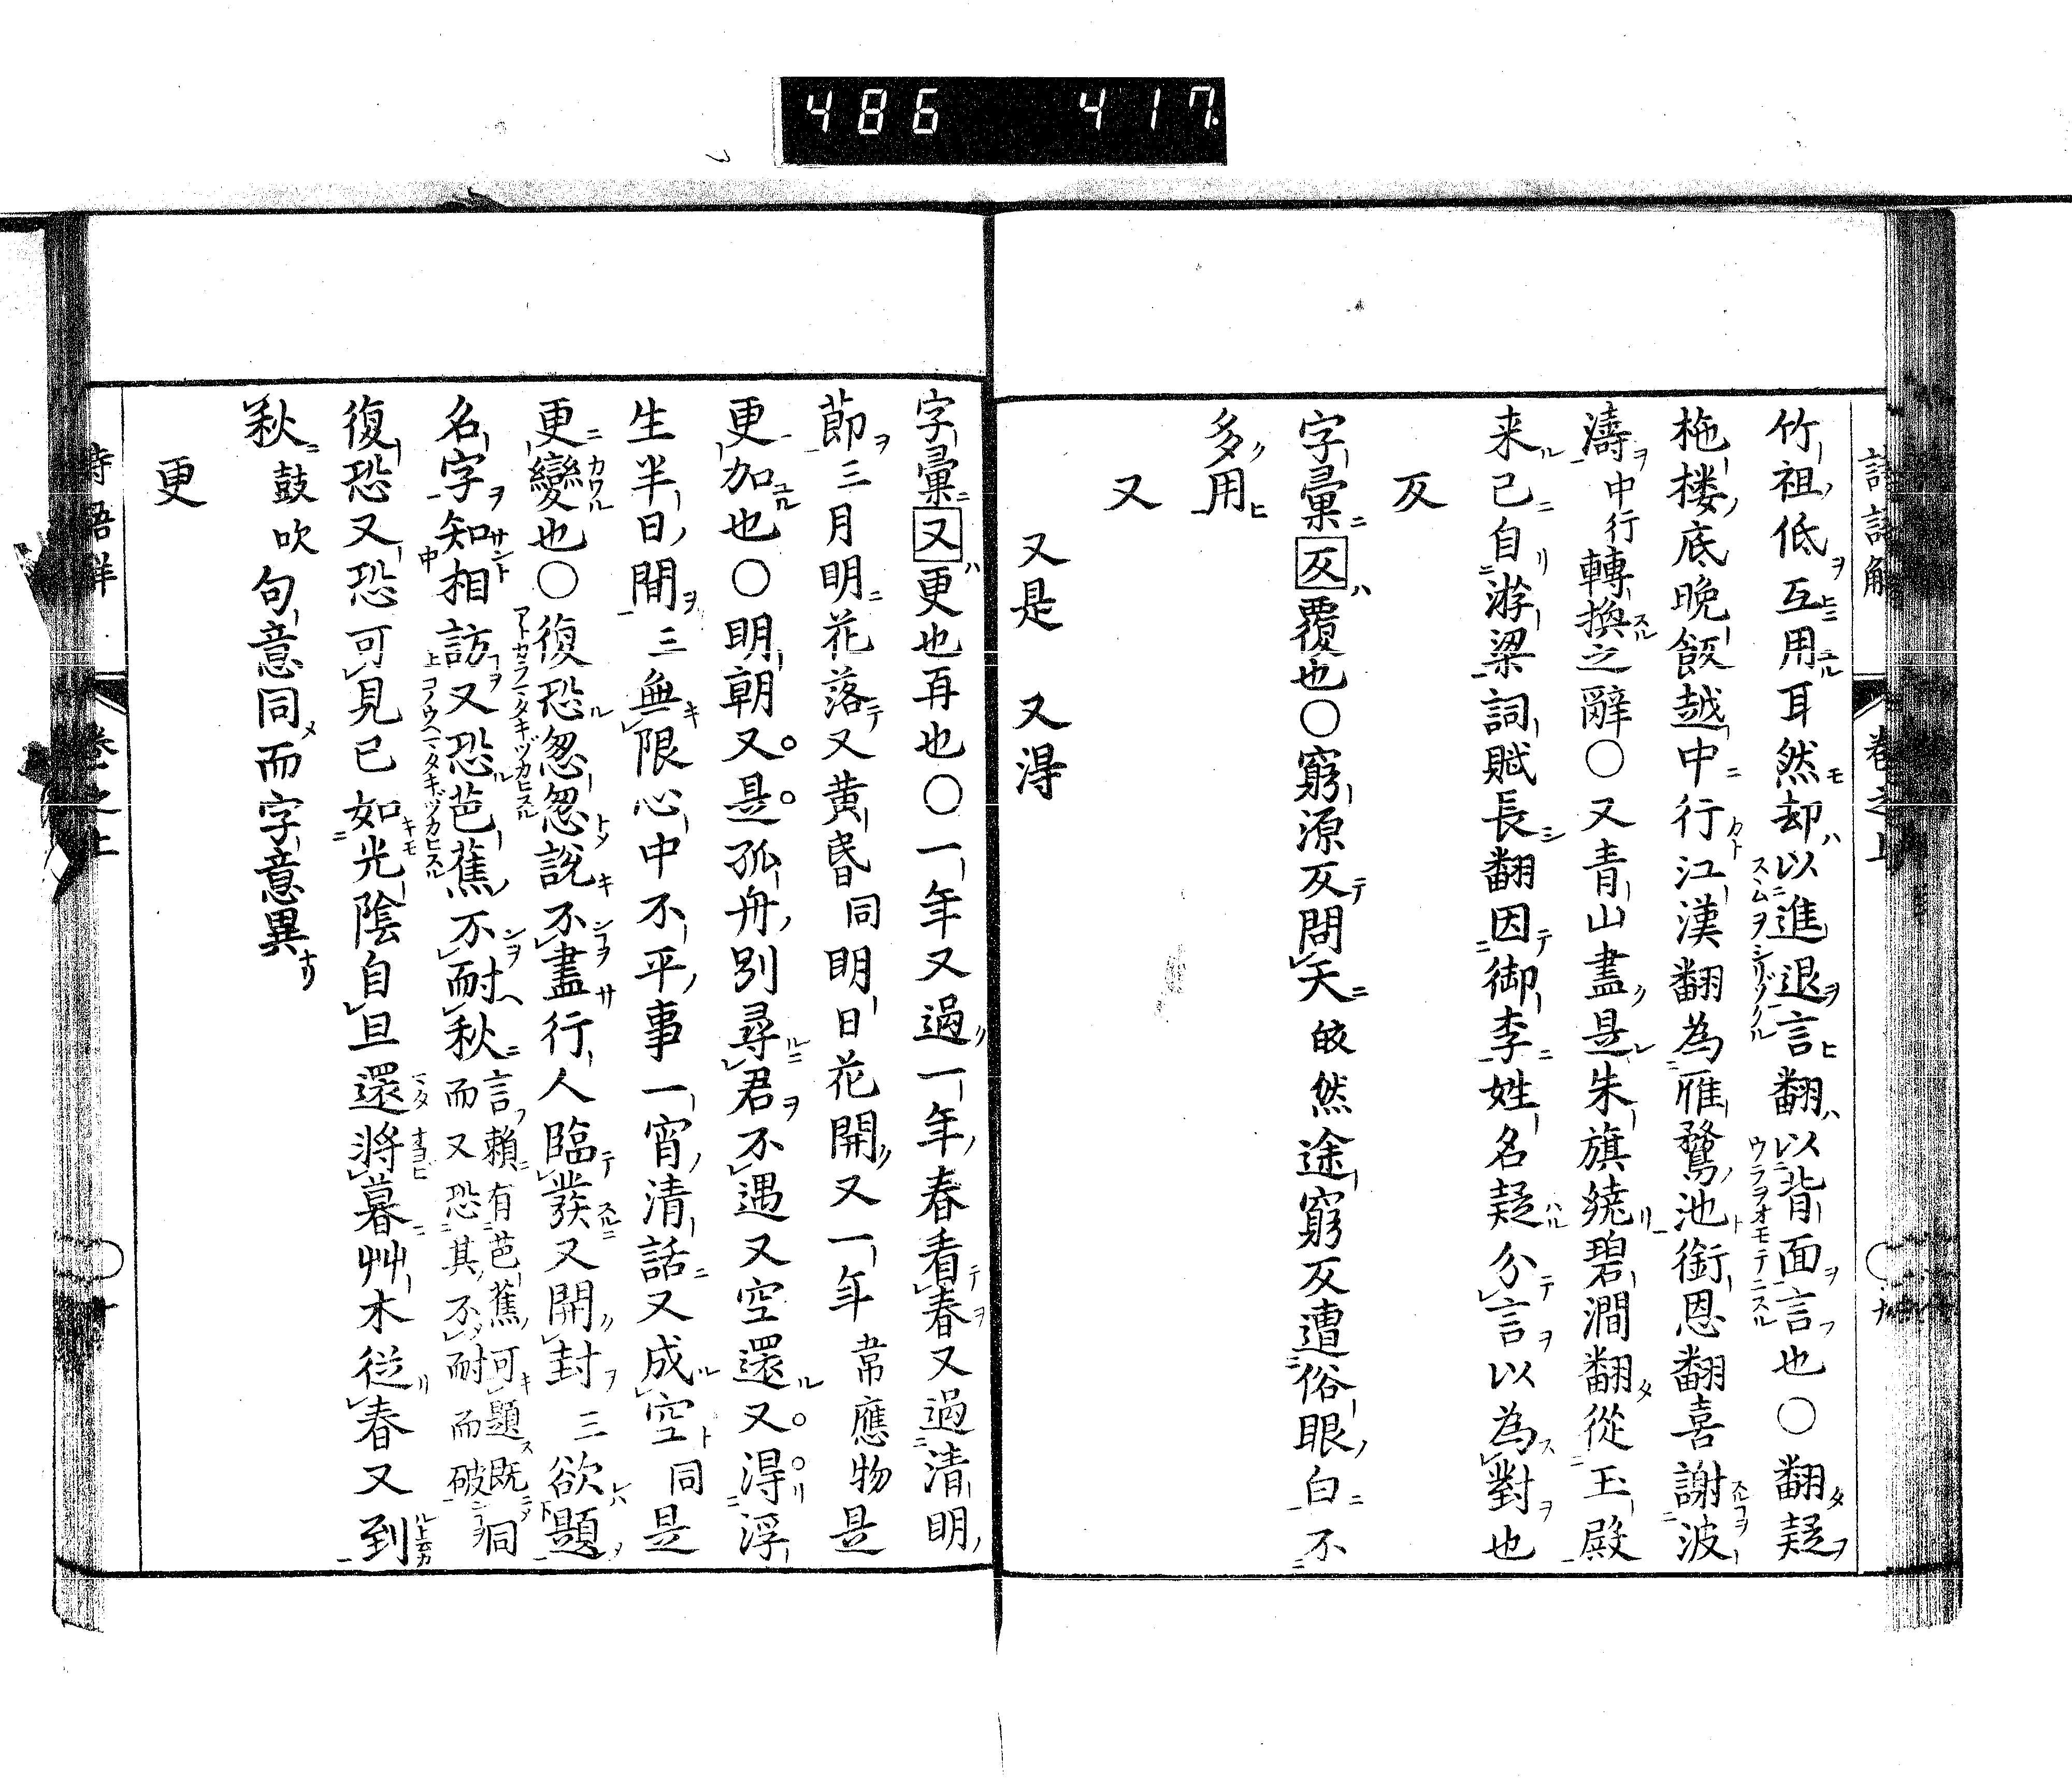 486 417
竹祖低互用耳然却以進退言翻以背面言也○翻疑
柂楼底晩飯越中行江漢翻為雁鶩池銜恩翻喜謝波
濤中行轉換之辭○又青山盡是朱旗繞碧澗翻從玉殿
来已自游梁詞賦長翻因御李姓名疑分言以為對也
反
字彙反覆也○窮源反問天皎然途窮反遭俗眼白不
多用
又
又是 又得
字彙又更也再也○一年又過一年春看春又過清明
節三月明花落又黄昏同明日花開又一年韋應物是
更加也○明朝又是孤舟別尋君不遇又空還又得浮
生半日間三無限心中不平事一宵清話又成空同是
更變也○復恐怱怱說不盡行人臨發又開封三欲題
名字知相訪又恐芭蕉不耐秋言頼有芭蕉可題既而又恐其不耐而破同
復恐又恐可見已如光陰自旦還將暮艸木從春又到
秋鼓吹句意同而字意異
更
卷之上